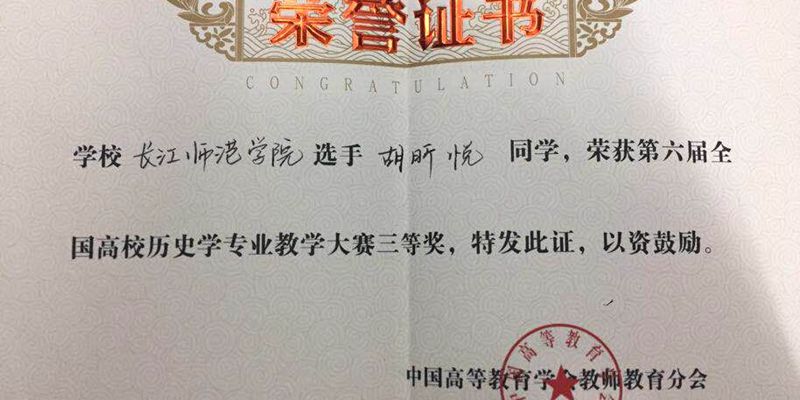 荣誉证书
CONGRATULATION
学校 长江师范学院 选手 胡昕悦 同学，荣获第六届全
国高校历史学专业教学大赛三等奖，特发此证，以资鼓励。
中国高等教育学会教师教育分会